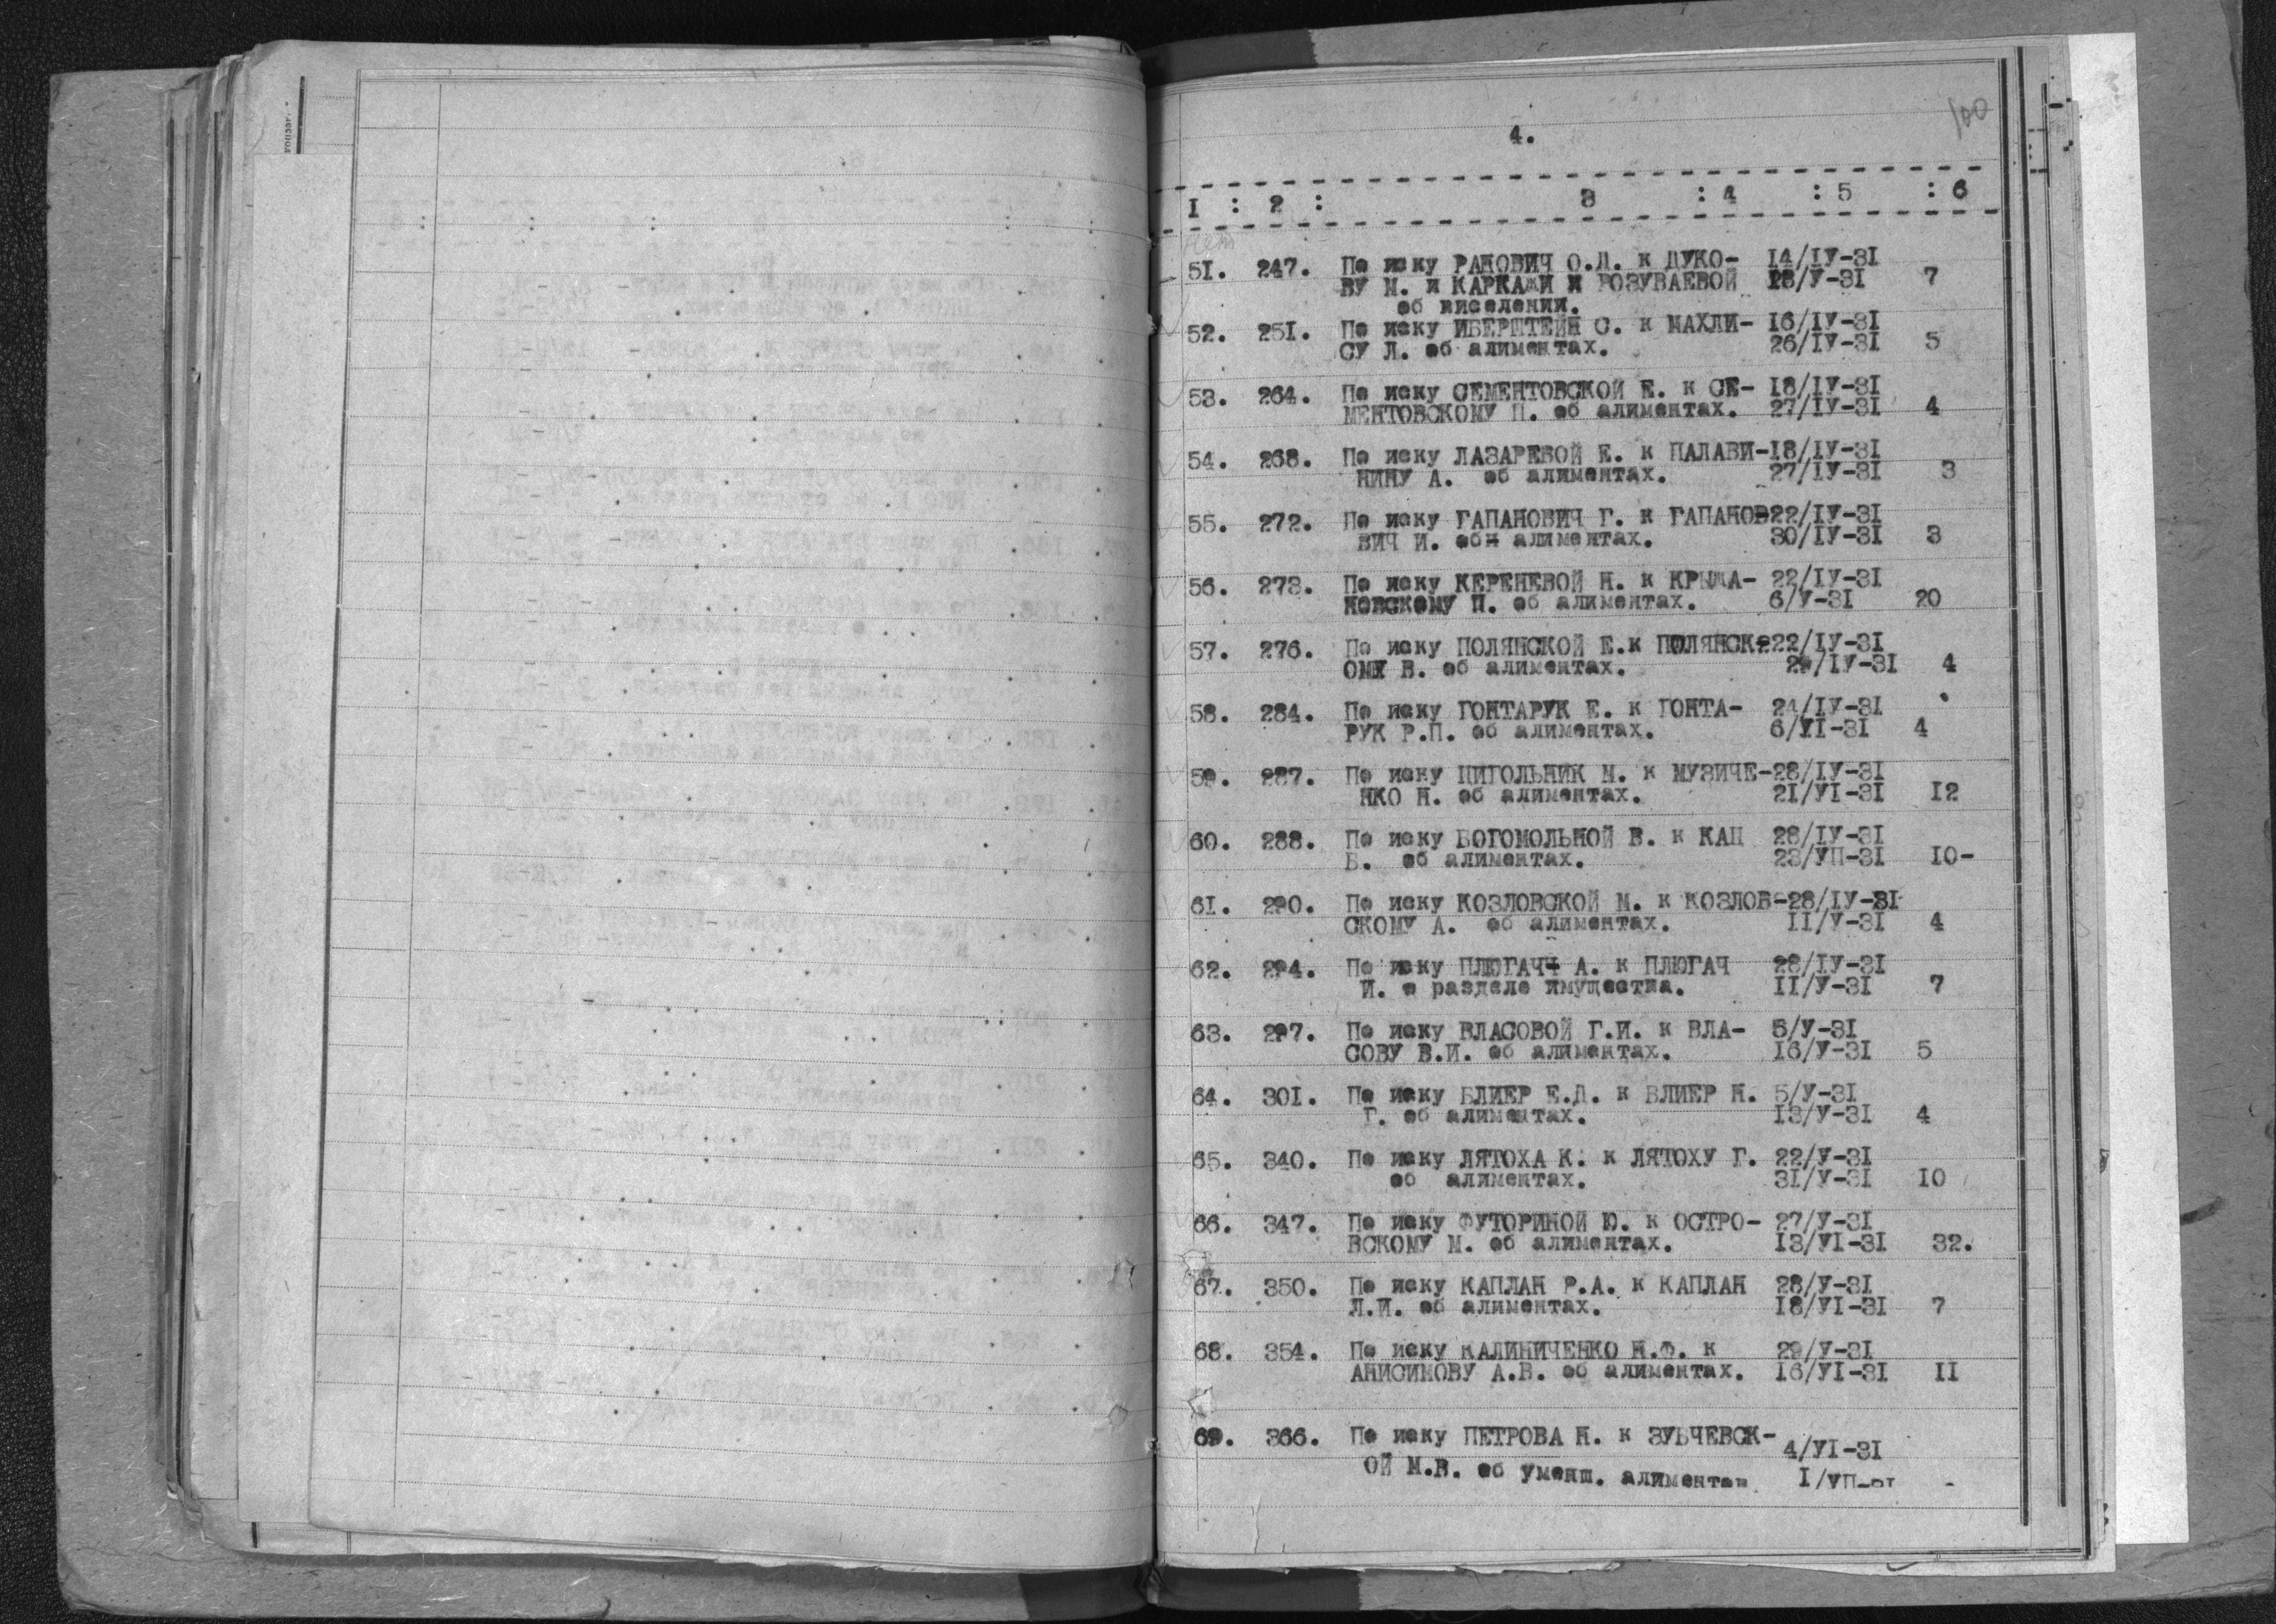 100
4.
I : 2 : 3 : 4 : 5 : 6
нет
51. 247. По иску РАНОВИЧ О.Д. к ДУКО- I4/IУ-3I
ВУ М. и КАРКАЖИ и РОЗУВАЕВОЙ 28/У-3I 7
об виселении.
52. 251. По иску ИБЕРШТЕЙН С. к МАХЛИ- I6/IУ-3I
СУ Л. об алиментах. 26/IУ-3I 5
53. 264. По иску СЕМЕНТОВСКОЙ Е. к СЕ- I8/IУ-3I
МЕНТОВСКОМУ П. об алиментах. 27/IУ-3I 4
54. 268. По иску ЛАЗАРЕВОЙ Е. к ПАЛАВИ-I8/IУ-3I
НИНУ А. об алиментах. 27/IУ-3I 3
55. 272. По иску ГАПАНОВИЧ Г. к ГАПАНОВ22/IУ-3I
ВИЧ И. об алиментах. 30/IУ-3I 3
56. 273. По иску КЕРЕНЕВОЙ Н. к КРЫЖА- 22/IУ-3I
НОВСКОМУ П. об алиментах. 6/У-3I 20
57. 276. По иску ПОЛЯНСКОЙ Е.к ПОЛЯНСК-22/IУ-3I
ОМУ В. об алиментах. 29/IУ-3I 4
58. 284. По иску ГОНТАРУК Е. к ГОНТА- 24/IУ-3I
РУК Р.П. об алиментах. 6/УI-3I 4
59. 287. По иску ЦИГОЛЬНИК М. к МУЗИЧЕ-28/IУ-3I
НКО Н. об алиментах. 21/УI-3I I2
60. 288. По иску БОГОМОЛЬНОЙ В. к КАЦ 28/IУ-3I
Б. об алиментах. 23/УП-3I I0-
61. 290. По иску КОЗЛОВСКОЙ М. к КОЗЛОВ-28/IУ-3I
СКОМУ А. об алиментах. II/У-3I 4
62. 294. По иску ПЛЮГАЧЧ А. к ПЛЮГАЧ 28/IУ-3I
И. о разделе имущества. II/У-3I 7
63. 297. По иску ВЛАСОВОЙ Г.И. к ВЛА- 5/У-3I
СОВУ В.И. об алиментах. I6/У-3I 5
64. 30I. По иску БЛИЕР Е.Д. к БЛИЕР Н. 5/У-3I
Г. об алиментах. I3/У-3I 4
65. 340. По иску ЛЯТОХА К. к ЛЯТОХУ Г. 22/У-3I
об алиментах. 3I/У-3I I0
66. 347. По иску ФУТОРИНОЙ Ю. к ОСТРО- 27/У-3I
ВСКОМУ М. об алиментах. I3/УI-3I 32.
67. 350. По иску КАПЛАН Р.А. к КАПЛАН 28/У-3I
Л.И. об алиментах. I8/УI-3I 7
68. 354. По иску КАЛИНИЧЕНКО Н.Ф. к 29/У-3I
АНИСИМОВУ А.В. об алиментах. I6/УI-3I II
69. 366. По иску ПЕТРОВА Н. к ЗУБЧЕВСК- 4/УI-3I
ОЙ М.В. об уменш. алиментам I/УП-3I -